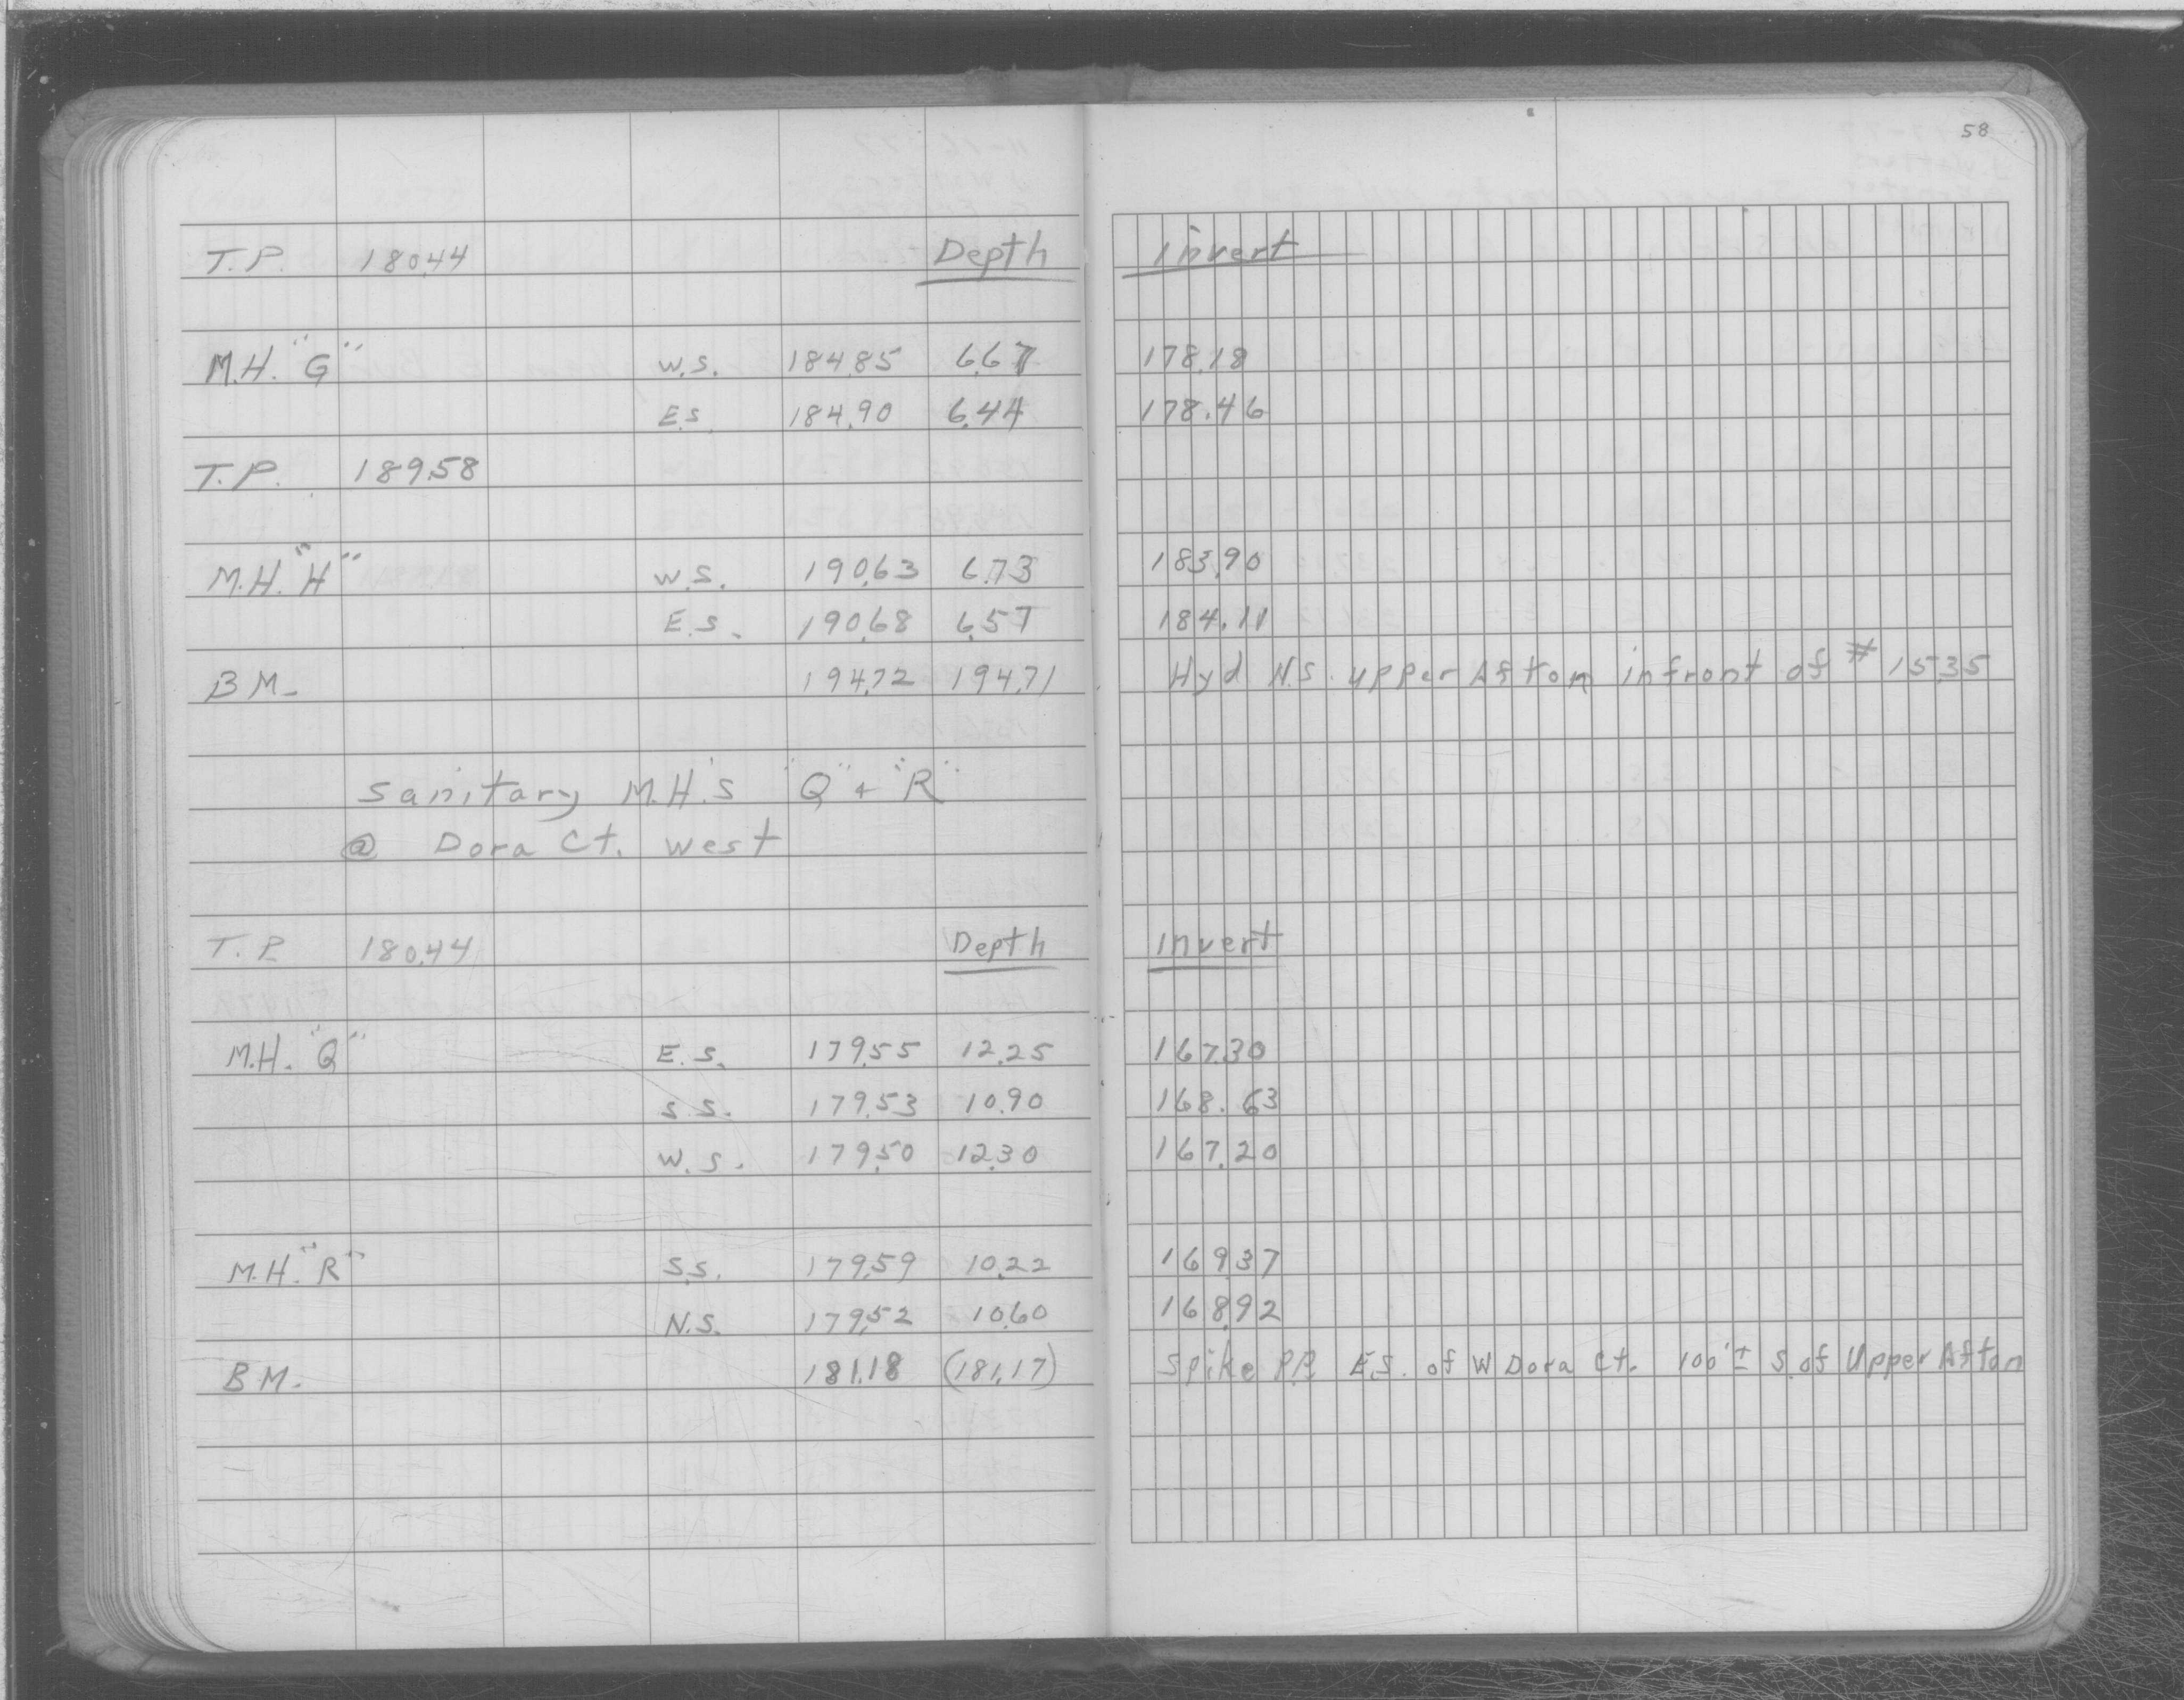 58
T.P. 180.44 Depth Invert
M.H. "G" W.S. 184.85 6.67 178.18
E.S. 184.90 6.44 178.46
T.P. 189.58
M.H. "H" W.S. 190.63 6.73 183.90
E.S. 190.68 6.57 184.11
B.M. 194.72 194.71 Hyd N.S. Upper Afton infront of # 1535
Sanitary M.H.'s "Q" + "R"
@ Dora Ct. West
T.P. 180.44 Depth Invert
M.H. "Q" E.S. 179.55 12.25 167.30
S.S. 179.53 10.90 168.63
W.S. 179.50 12.30 167.20
M.H. "R" S.S. 179.59 10.22 169.37
N.S. 179.52 10.60 168.92
B.M. 181.18 (181.17) Spike P.P. E.S. of W Dora Ct. 100'± S. of Upper Afton